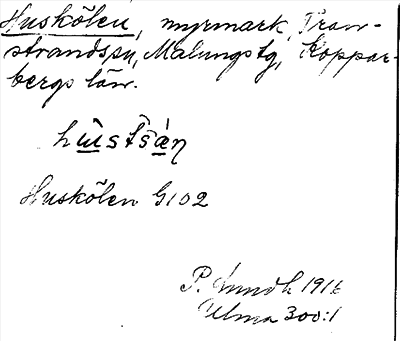 Huskölen, myrmark, Tran-
strands sn, Malungs tg, Koppar-
bergs län.
Huskölen G102
P. Lundh 1916
Ulma 300:1